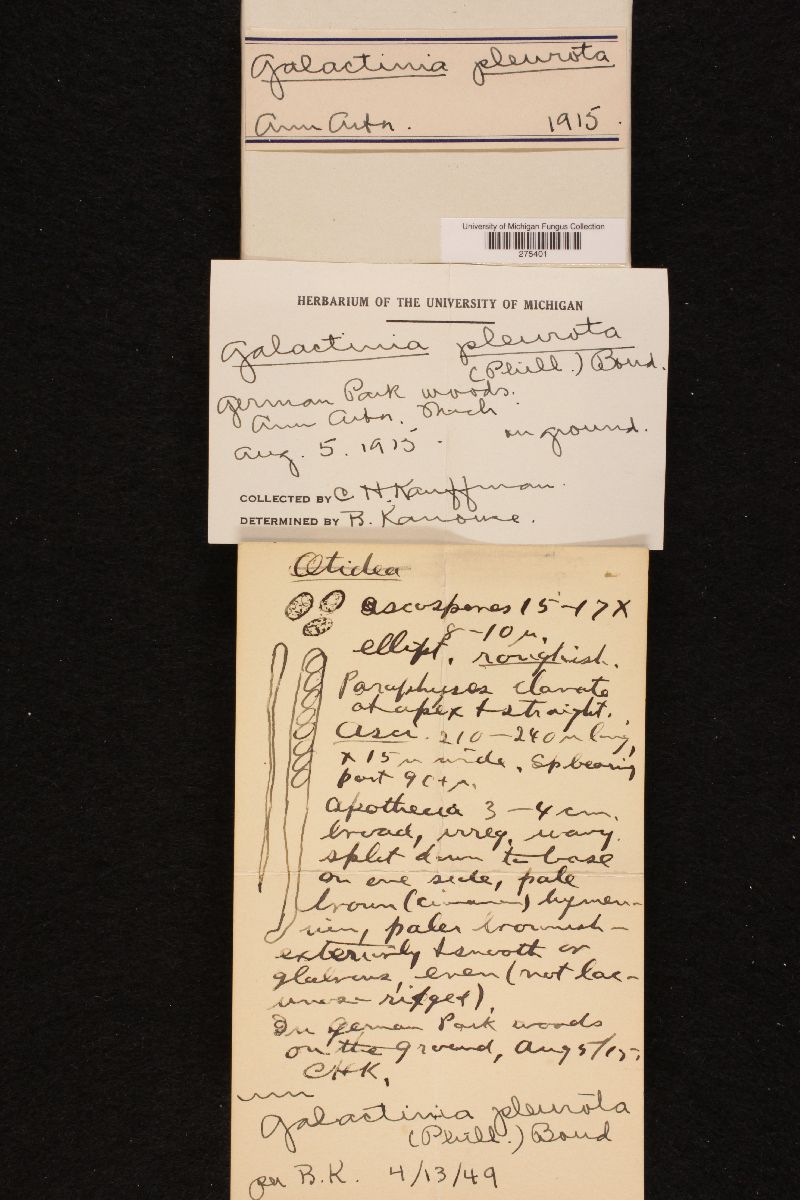 Galactinia pleurota
Ann Arbr. 1915.
University of Michigan Fungus Collection
275401
HERBARIUM OF THE UNIVERSITY OF MICHIGAN
Galactinia pleurota
(Phill.) Boud.
German Park woods.
Ann Arbr. Mich.
on ground.
Aug. 5. 1915.
COLLECTED BY C. H. Kauffman.
DETERMINED BY B. Kanouse.
Otidea
ascospores 15-17 X
8-10 µ.
ellipt. roughish.
Paraphyses clavate
at apex + straight.
Asci. 210-240 µ long,
x 15 µ wide. Sp bearing
part 90+ µ.
Apothecia 3-4 cm.
broad, irreg. wavy.
split down to base
on one side, pale
brown () hymen-
ium, paler brownish-
exteriorly + smooth or
glabrous, even (not lac-
unose ridged).
In German Park woods
on the ground, Aug 5/15,
CHK,
Galactinia pleurota
(Phill.) Boud
per B.K. 4/13/49